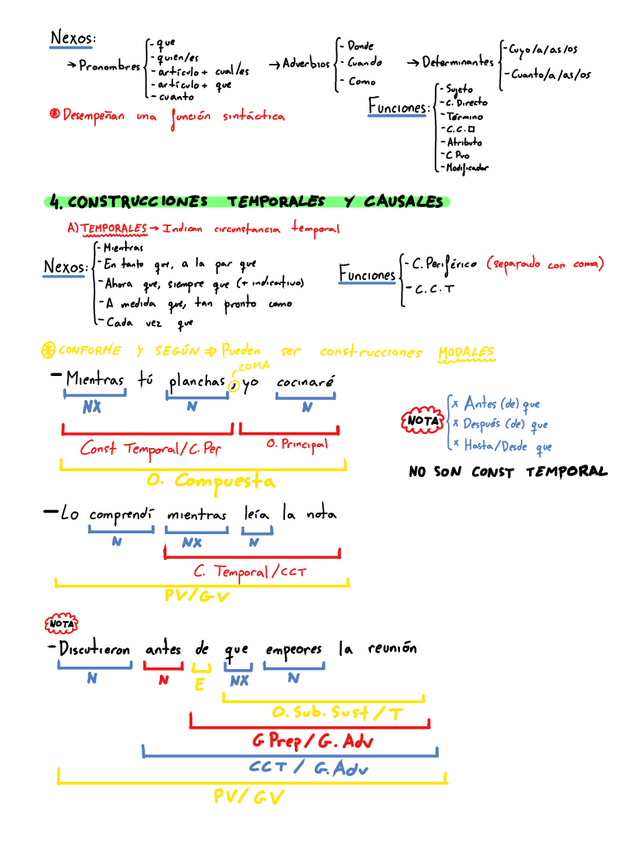 Nexos:
→ Pronombres
- que
- quien/es
- artículo + cual/es
- artículo + que
- cuanto
→ Adverbios
- Donde
- Cuando
- Como
→ Determinantes
- Cuyo/a/as/os
- Cuanto/a/as/os
* Desempeñan una función sintáctica
Funciones:
- Sujeto
- C. Directo
- Término
- C.C.
- Atributo
- C. Pvo
- Modificador
4. CONSTRUCCIONES TEMPORALES Y CAUSALES
A) TEMPORALES → Indican circunstancia temporal
Nexos:
- Mientras
- En tanto que, a la par que
- Ahora que, siempre que (+ indicativo)
- A medida que, tan pronto como
- Cada vez que
Funciones
- C. Periférico (separado con coma)
- C.C.T
* CONFORME Y SEGÚN ⇒ Pueden ser construcciones MODALES
COMA
- Mientras tú planchas, yo cocinaré
NX N N
Const Temporal/C. Per O. Principal
O. Compuesta
NOTA
x Antes (de) que
x Después (de) que
x Hasta/Desde que
NO SON CONST TEMPORAL
- Lo comprendí mientras leía la nota
N NX N
C. Temporal/CCT
PV/GV
NOTA
- Discutieron antes de que empeores la reunión
N N E NX N
O. Sub. Sust/T
G Prep/G. Adv
CCT / G. Adv
PV/GV